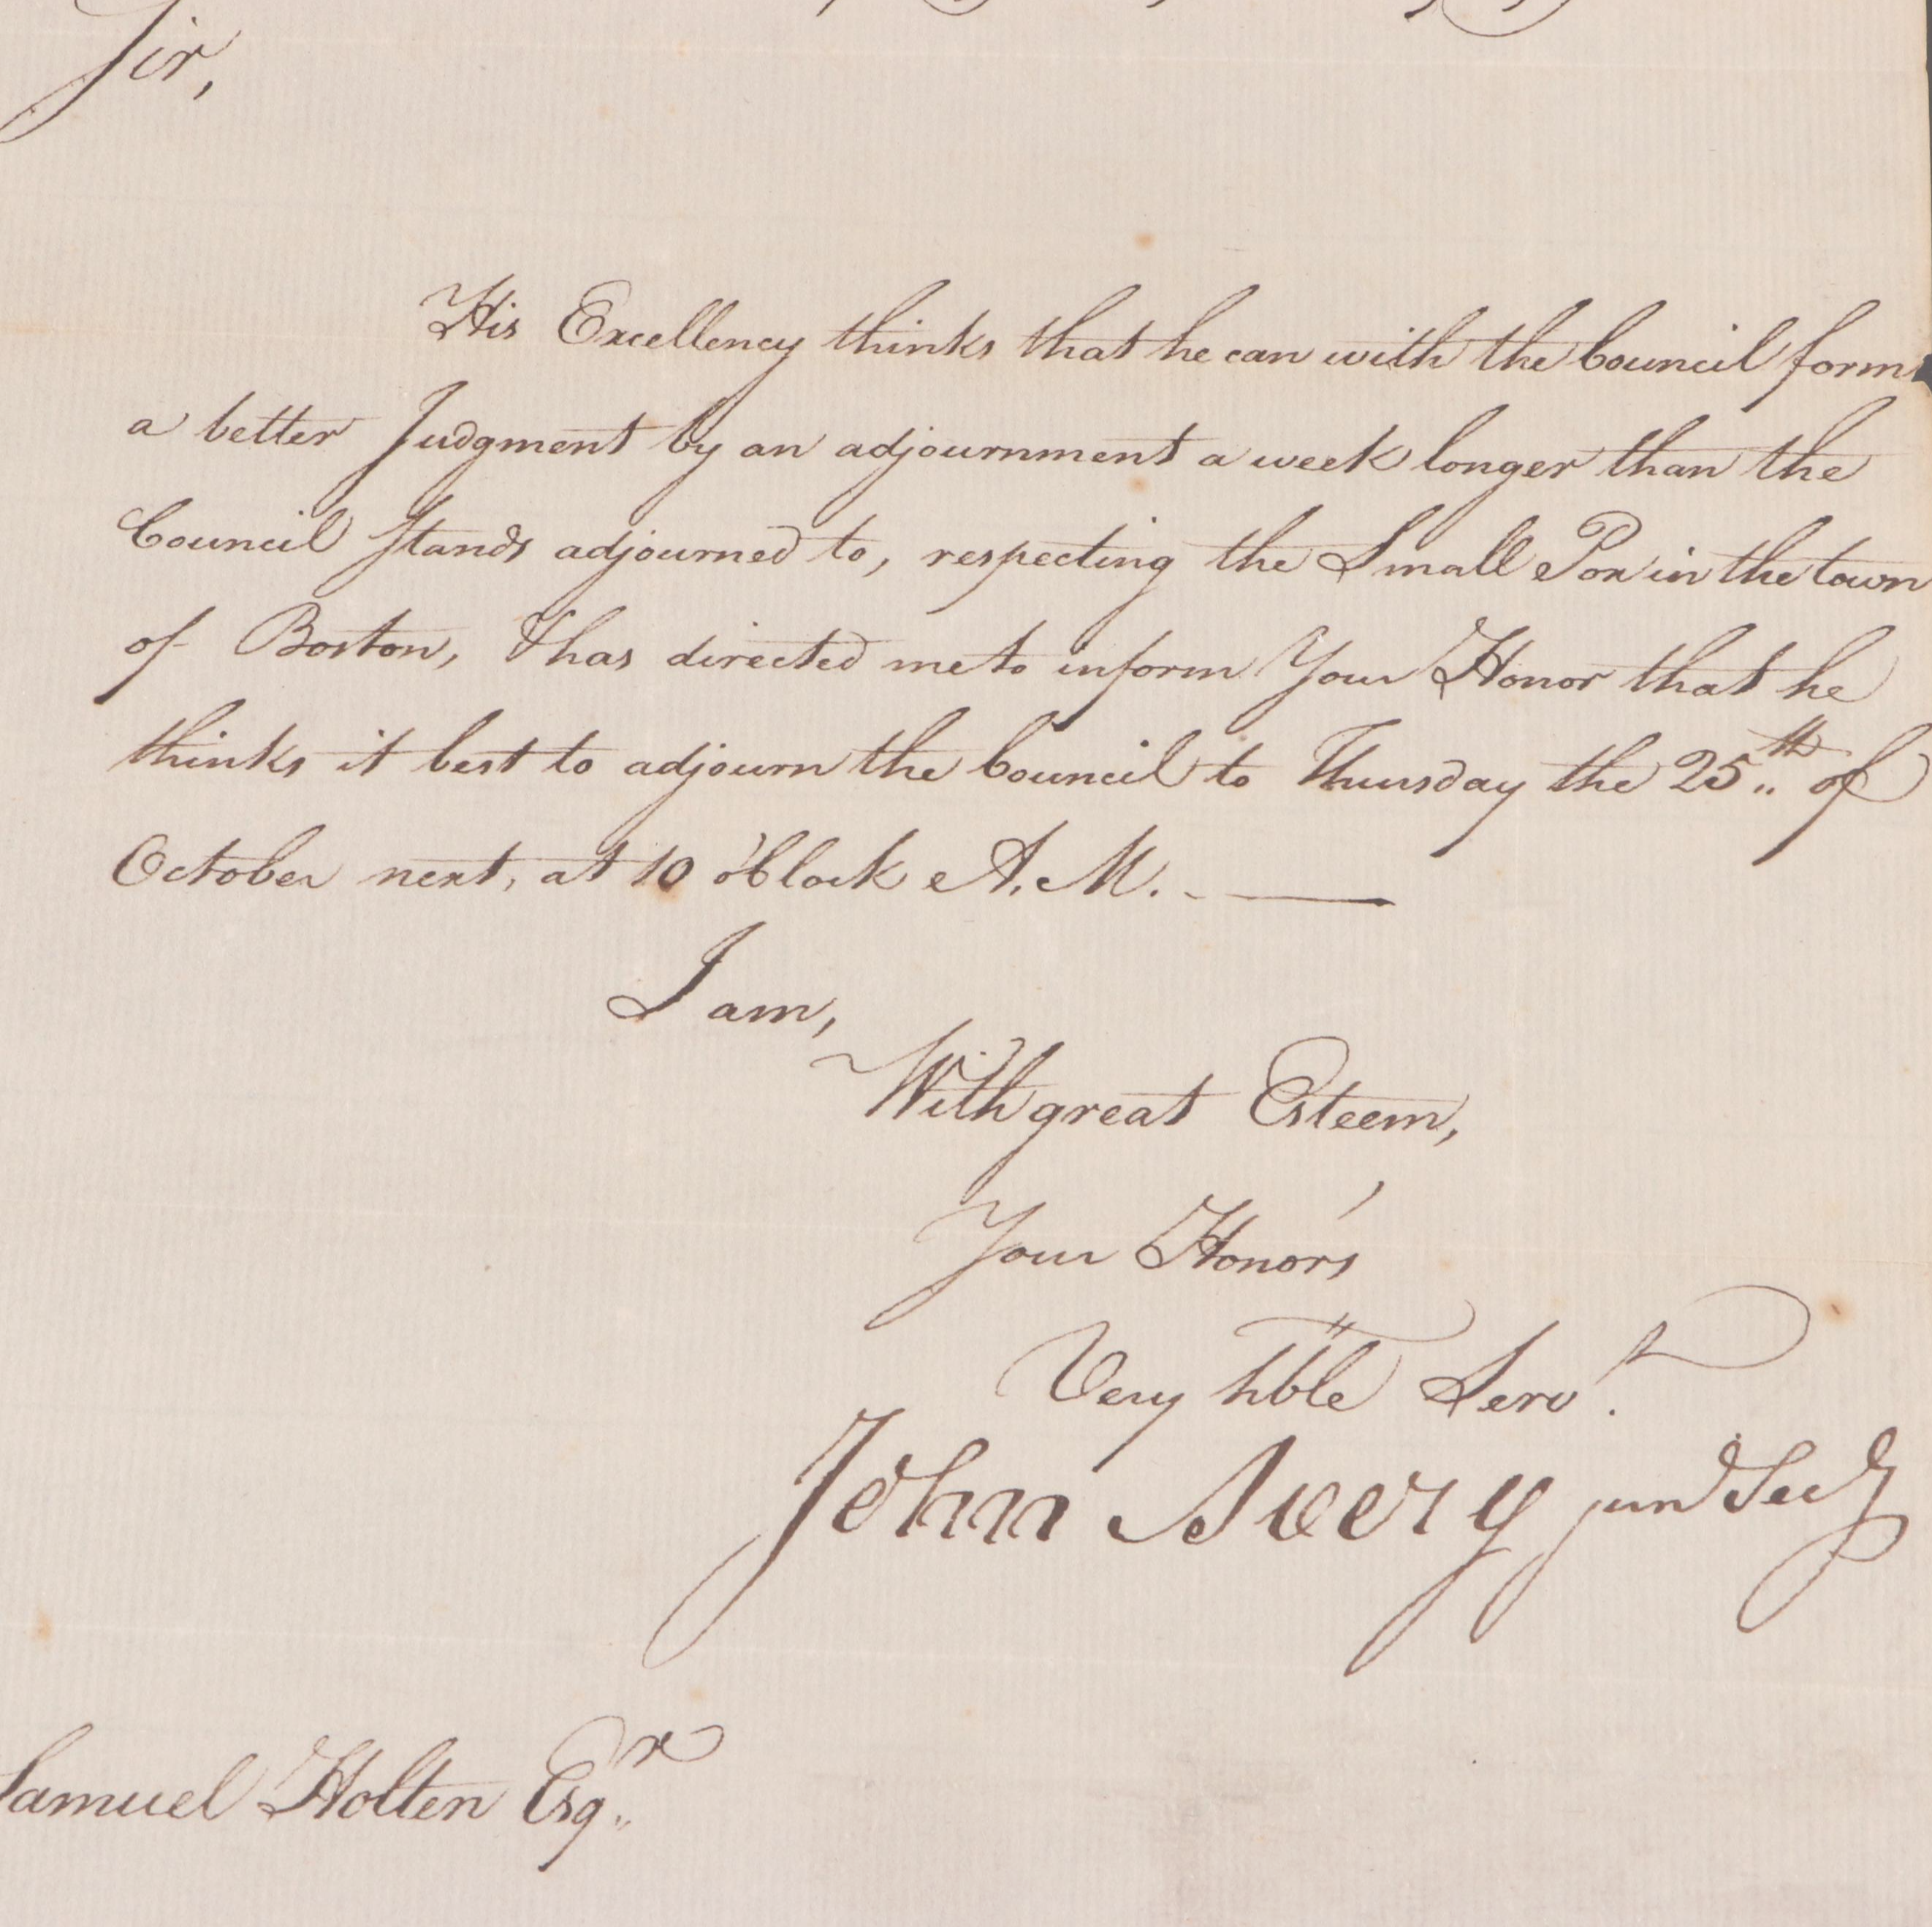 Sir,
His Excellency thinks that he can with the Council form
a better Judgment by an adjournment a week longer than the
Council Stands adjourned to, respecting the Small Pox in the town
of Boston, & has directed me to inform Your Honor that he
thinks it best to adjourn the Council to Thursday the 25th of
October next, at 10 o'Clock A.M.
I am,
With great Esteem,
Your Honor's
Very hble Servt.
John Avery junr Secy
Samuel Holten Esqr.